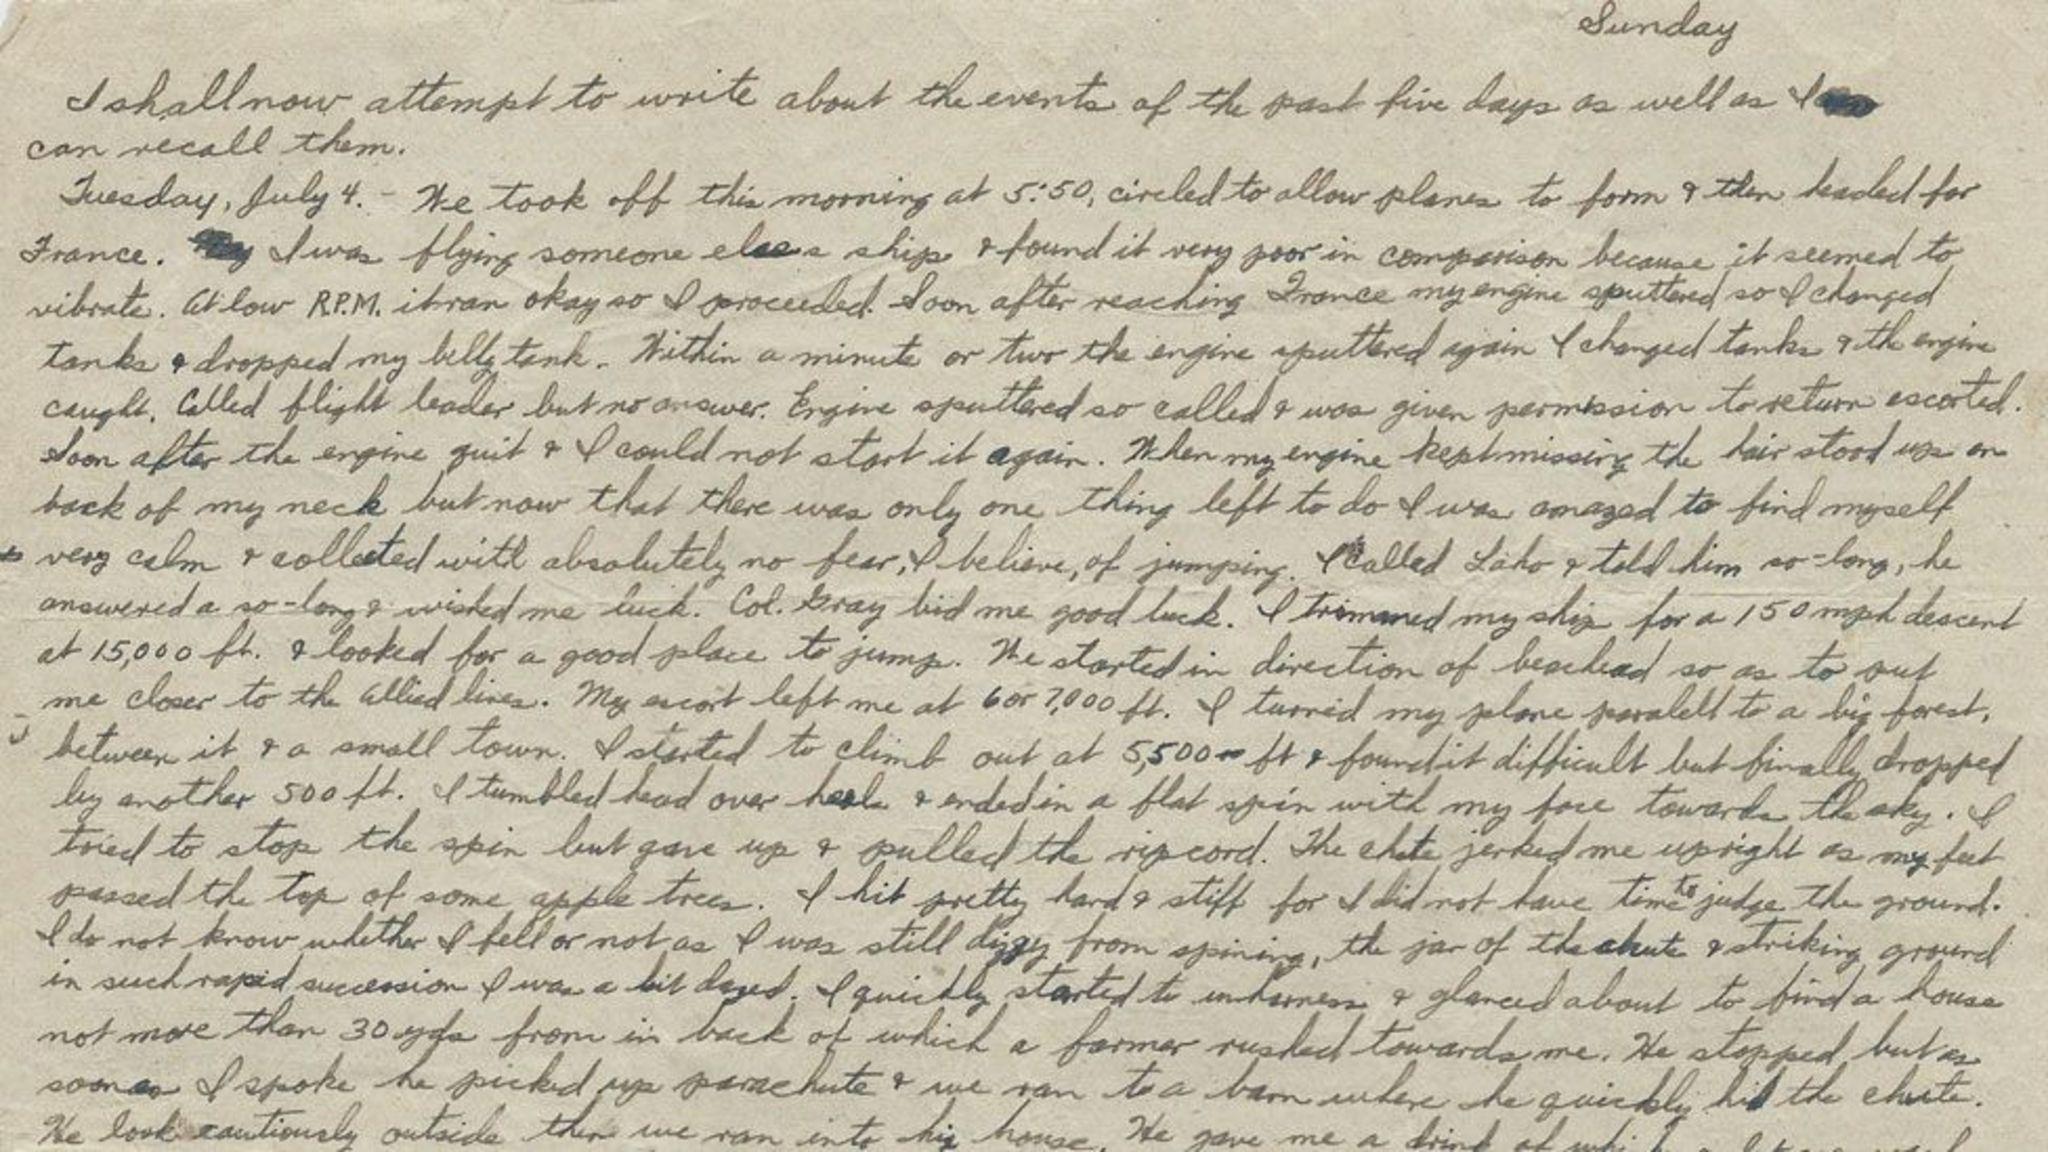 Sunday
I shall now attempt to write about the events of the past five days as well as I
can recall them.
Tuesday, July 4. - We took off this morning at 5:50, circled to allow planes to form & then headed for
France. I was flying someone elses ship & found it very poor in comparison because it seemed to
vibrate. At low R.P.M. it ran okay so I proceeded. Soon after reaching France my engine sputtered so I changed
tanks & dropped my belly tank. Within a minute or two the engine sputtered again I changed tanks & the engine
caught. Called flight leader but no answer. Engine sputtered so called & was given permission to return escorted.
Soon after the engine quit & I could not start it again. When my engine kept missing the hair stood up on
back of my neck but now that there was only one thing left to do I was amazed to find myself
very calm & collected with absolutely no fear, I believe, of jumping. I called Laho & told him so-long, he
answered a so-long & wished me luck. Col. Gray bid me good luck. I trimmed my ship for a 150 mph descent
at 15,000 ft. & looked for a good place to jump. We started in direction of beachead so as to put
me closer to the Allied lines. My escort left me at 6 or 7,000 ft. I turned my plane paralell to a big forest,
between it & a small town. I started to climb out at 5,500 ft & found it difficult but finally dropped
by another 500 ft. I tumbled head over heels & ended in a flat spin with my face towards the sky. I
tried to stop the spin but gave up & pulled the ripcord. The chute jerked me upright as my feet
passed the top of some apple trees. I hit pretty hard & stiff for I did not have time to judge the ground.
I do not know whether I fell or not as I was still dizzy from spining, the jar of the chute & striking ground
in such rapid succession I was a bit dazed. I quickly started to unharness & glanced about to find a house
not more than 30 yds from in back of which a farmer rushed towards me. He stopped, but as
soon as I spoke he picked up parachute & we ran to a barn where he quickly hid the chute.
We look cautiously outside then we ran into his house. He gave me a drink of